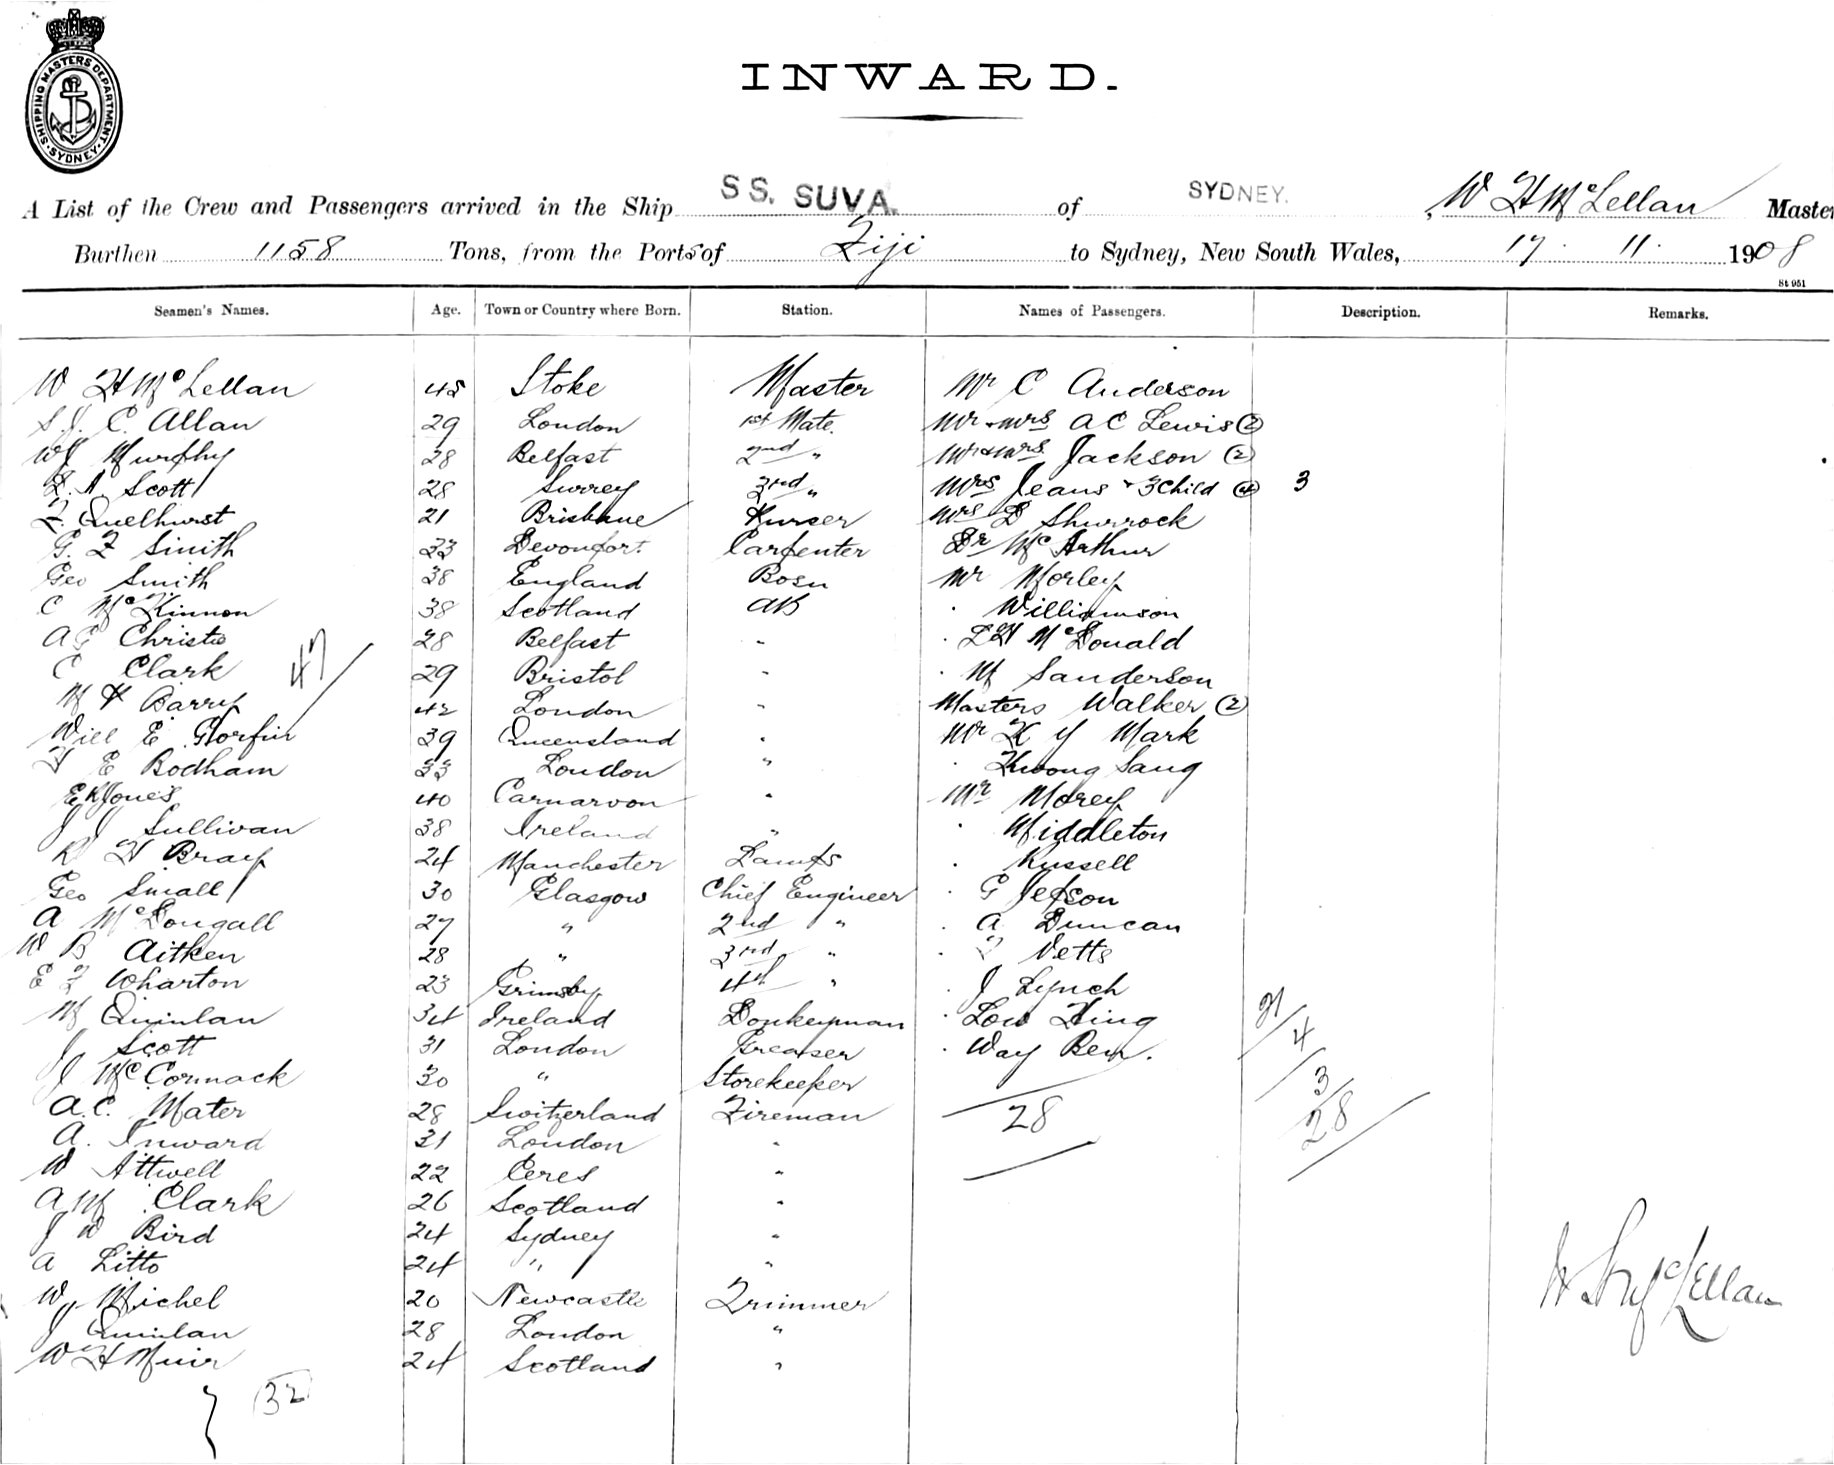 SHIPPING MASTERS DEPARTMENT. SYDNEY.
INWARD.
A List of the Crew and Passengers arrived in the Ship SS. SUVA. of SYDNEY. , W H McLellan Master
Burthen 1158 Tons, from the Ports of Fiji to Sydney, New South Wales, 17. 11. 1908
St 951
Seamen's Names. Age. Town or Country where Born. Station. Names of Passengers. Description. Remarks.
W H McLellan 45 Stoke Master Mr C Anderson
S. J. C. Allan 29 London 1st Mate. Mr & Mrs A C Lewis (2)
W J Murphy 28 Belfast 2nd " Mr & Mrs Jackson (2)
Scott 28 Surrey 3rd " Mrs Jeans & 3 Child (4) 3
F. Quelhurst 21 Brisbane Purser Mrs D Shurrock
G. F Smith 33 Devonport Carpenter Dr McArthur
Geo Smith 38 England Bosn Mr Morley
C McKinnon 38 Scotland AB " Williamson
A G Christie 28 Belfast " " L H McDonald
C Clark 29 Bristol " " M Sanderson
47
M H Barry 42 London " Masters Walker (2)
Will E Gorfin 39 Queensland " Mr K Y Mark
H E Bodham 33 London " " Kwong Sang
E R Jones 40 Carnarvon " Mr Morey
J J Sullivan 38 Ireland " " Middleton
R H Bray 24 Manchester Lamps " Russell
Geo Small 30 Glasgow Chief Engineer " G Jepson
A McDougall 27 " 2nd " " A Duncan
W B Aitken 28 " 3rd " " F Vetts
E F Wharton 23 Grimsby 4th " " J Lynch
M Quinlan 34 Ireland Donkeyman " Low Hing 21
J Scott 31 London Greaser " Way Ben. 4
J McCormack 30 " Storekeeper 3
A. C. Mater 28 Switzerland Fireman 28 28
A. Inward 31 London "
W Attwell 22 Ceres "
A M Clark 26 Scotland "
J W Bird 24 Sydney "
A Litto 24 " "
W Michel 20 Newcastle Trimmer W H McLellan
J Quinlan 28 London "
W H Muir 24 Scotland "
32